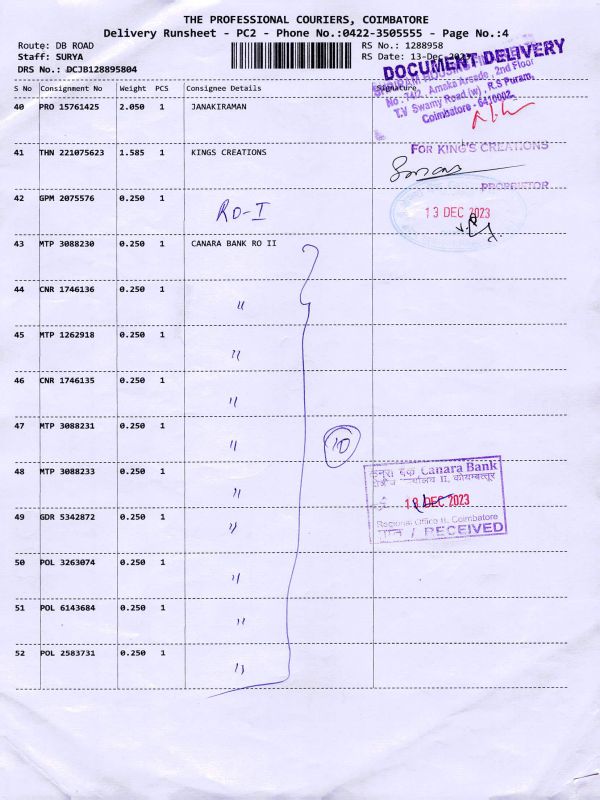 THE PROFESSIONAL COURIERS, COIMBATORE
Delivery Runsheet - PC2 - Phone No.:0422-3505555 - Page No.:4
Route: DB ROAD RS No.: 1288958
Staff: SURYA RS Date: 13-Dec-2023
DRS No.: DCJB128895804
DOCUMENT DELIVERY
S No Consignment No Weight PCS Consignee Details Signature
No. 742, Amaka Arcade, 2nd Floor
T.V Swamy Road (w), R.S Puram,
Coimbatore - 641002.
40 PRO 15761425 2.050 1 JANAKIRAMAN
41 THN 221075623 1.585 1 KINGS CREATIONS
FOR KING'S CREATIONS
PROPRIETOR
42 GPM 2075576 0.250 1 RO-I
13 DEC 2023
43 MTP 3088230 0.250 1 CANARA BANK RO II
44 CNR 1746136 0.250 1 "
45 MTP 1262918 0.250 1 "
46 CNR 1746135 0.250 1 "
47 MTP 3088231 0.250 1 "
10
48 MTP 3088233 0.250 1 "
Canara Bank
DEC 2023
Regional Office II, Coimbatore
/ RECEIVED
49 GDR 5342872 0.250 1 "
50 POL 3263074 0.250 1 "
51 POL 6143684 0.250 1 "
52 POL 2583731 0.250 1 "